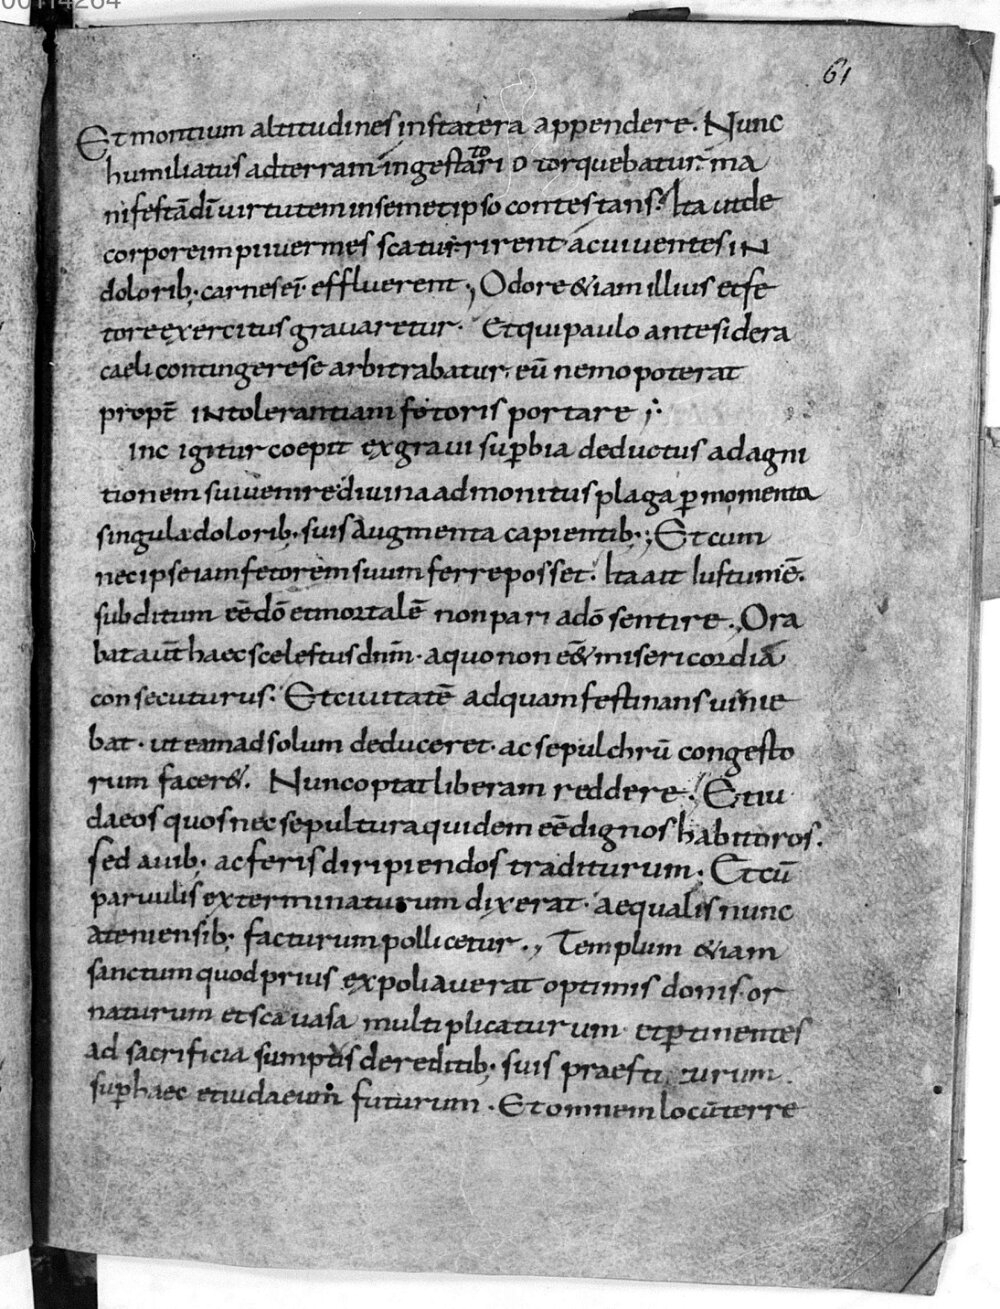 61
Et montium altitudines in statera appendere. Nunc
humiliatus adterram ingestatorio torquebatur. ma
nifestā dī uirtutem insemetipso contestans. Ita utde
corpore impii uermes scaturrirent acuiuentes IN
dolorib; carnes eī effluerent; Odore &iam illius et fe
tore exercitus grauaretur. Et qui paulo ante sidera
caeli contingere se arbitrabatur. eū nemo poterat
propt̄ INtolerantiam fetoris portare;
inc igitur coepit ex graui sup̄bia deductus ad agni
tionem sui uenire diuina admonitus plaga p̄ momenta
singula dolorib; suis augmenta capientib;; Et cum
nec ipse iam fetorem suum ferre posset. Ita ait Iustum ē.
subditum eē dō et mortalē non pari adō sentire. Ora
bat aūt haec scelestus dnm̄. a quo non eēt misericordiā
consecuturus. Et ciuitatē adquam festinans uenie
bat. ut eam ad solum deduceret. ac sepulchrū congesto
rum facer&. Nunc optat liberam reddere. Et iu
daeos quos nec sepultura quidem eē dignos habituros.
sed auib; ac feris diripiendos traditurum. Et cū
paruulis exterminaturum dixerat. aequalis nunc
ateniensib; facturum pollicetur., Templum &iam
sanctum quod prius expoliauerat optimis donis or
naturum et sca uasa multiplicaturum et p̄tinentes
ad sacrificia sumptus de reditib; suis praestiturum.
sup̄ haec et iudaeum futurum. Et omnem locū terre